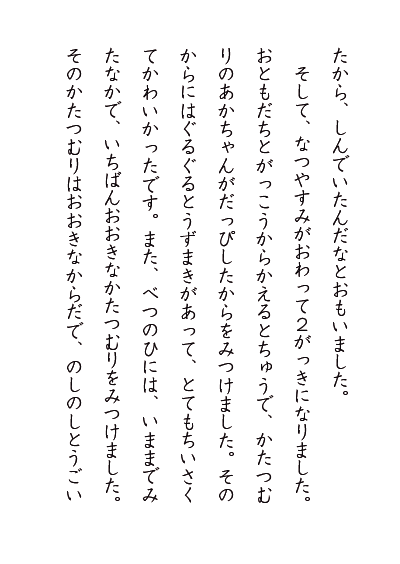 たから、しんでいたんだなとおもいました。
そして、なつやすみがおわって２がっきになりました。
おともだちとがっこうからかえるとちゅうで、かたつむ
りのあかちゃんがだっぴしたからをみつけました。その
からにはぐるぐるとうずまきがあって、とてもちいさく
てかわいかったです。また、べつのひには、いままでみ
たなかで、いちばんおおきなかたつむりをみつけました。
そのかたつむりはおおきなからだで、のしのしとうごい